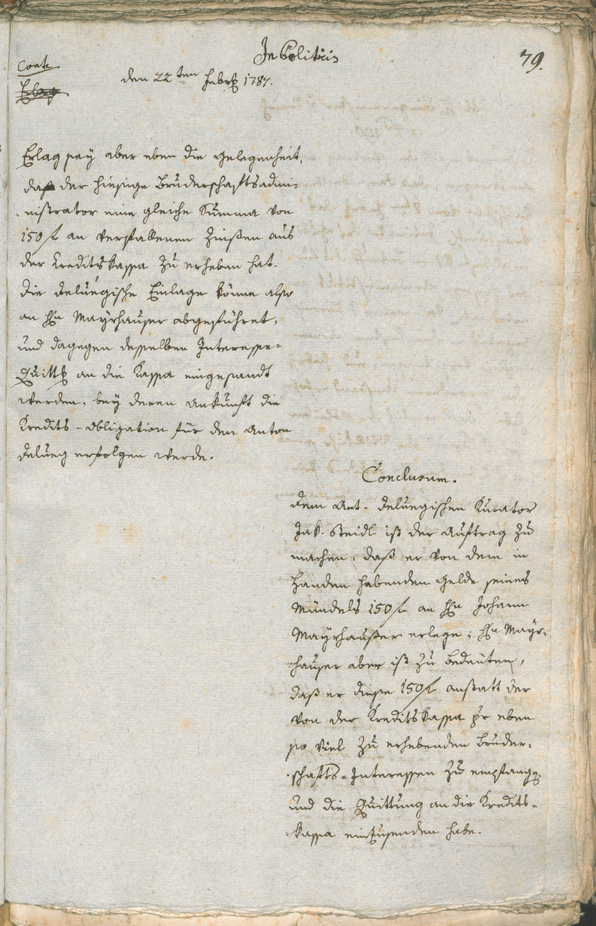 In Politicis
79.
Cont.
den 22ten Febr. 1787.
Erlag
Erlag sey aber eben die Gelegenheit,
daß der hiesige Bruderschaftsadmi-
nistrator eine gleiche Summa von
150 f an verfallenen Zinßen aus
der Kreditskassa zu erheben hat.
Die Delugische Einlage könne also
an Hn Mayrhauser abgeführet,
und dagegen desselben Interesse-
Quittg an die Kassa eingesandt
werden, bey deren Ankunft die
Kredits-Obligation für den Anton
Delueg erfolgen werde.
Conclusum.
Dem Ant. Deluegischen Kurator
Jak. Steidl ist der Auftrag zu
machen, daß er von dem in
Handen habenden Gelde seines
Mündels 150 f an Hn Johann
Mayrhauser erlege; Hn Mayr-
hauser aber ist zu bedeuten,
daß er diese 150 f anstatt der
von der Kreditskassa pr eben
so viel zu erhebenden Bruder-
schafts-Interessen zu empfang
und die Quittung an die Kredits-
kassa einzusenden habe.